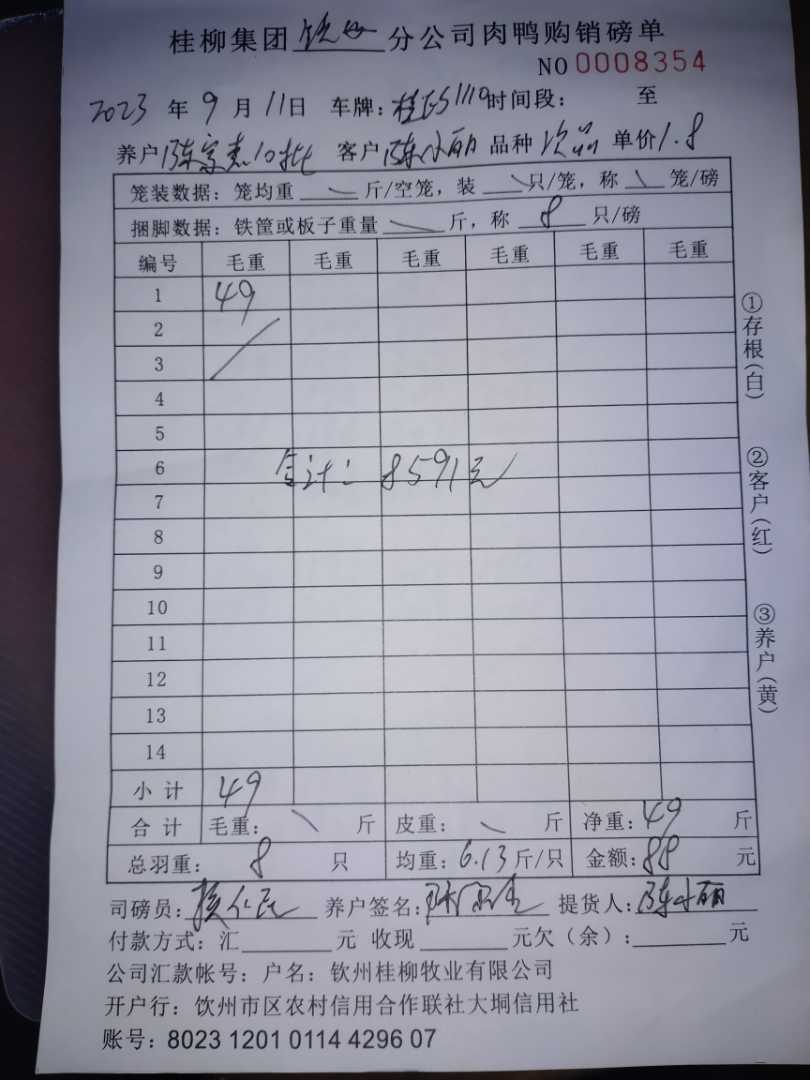 桂柳集团 钦州 分公司肉鸭购销磅单
NO 0008354
2023 年 9 月 11 日 车牌: 时间段: 至
养户 陈 10批 客户 陈小丽 品种 次品 单价 1.8
笼装数据: 笼均重 斤/空笼, 装 只/笼, 称 笼/磅
捆脚数据: 铁筐或板子重量 斤, 称 8 只/磅
编号 毛重 毛重 毛重 毛重 毛重 毛重
1 49
2
3
4
5
6
合计: 8591元
7
8
9
10
11
12
13
14
小 计 49
合 计 毛重: 斤 皮重: 斤 净重: 49 斤
总羽重: 8 只 均重: 6.13 斤/只 金额: 88 元
司磅员: 养户签名: 提货人: 陈小丽
付款方式: 汇 元 收现 元欠(余): 元
公司汇款帐号: 户名: 钦州桂柳牧业有限公司
开户行: 钦州市区农村信用合作联社大垌信用社
账号: 8023 1201 0114 4296 07
①存根(白)
②客户(红)
③养户(黄)